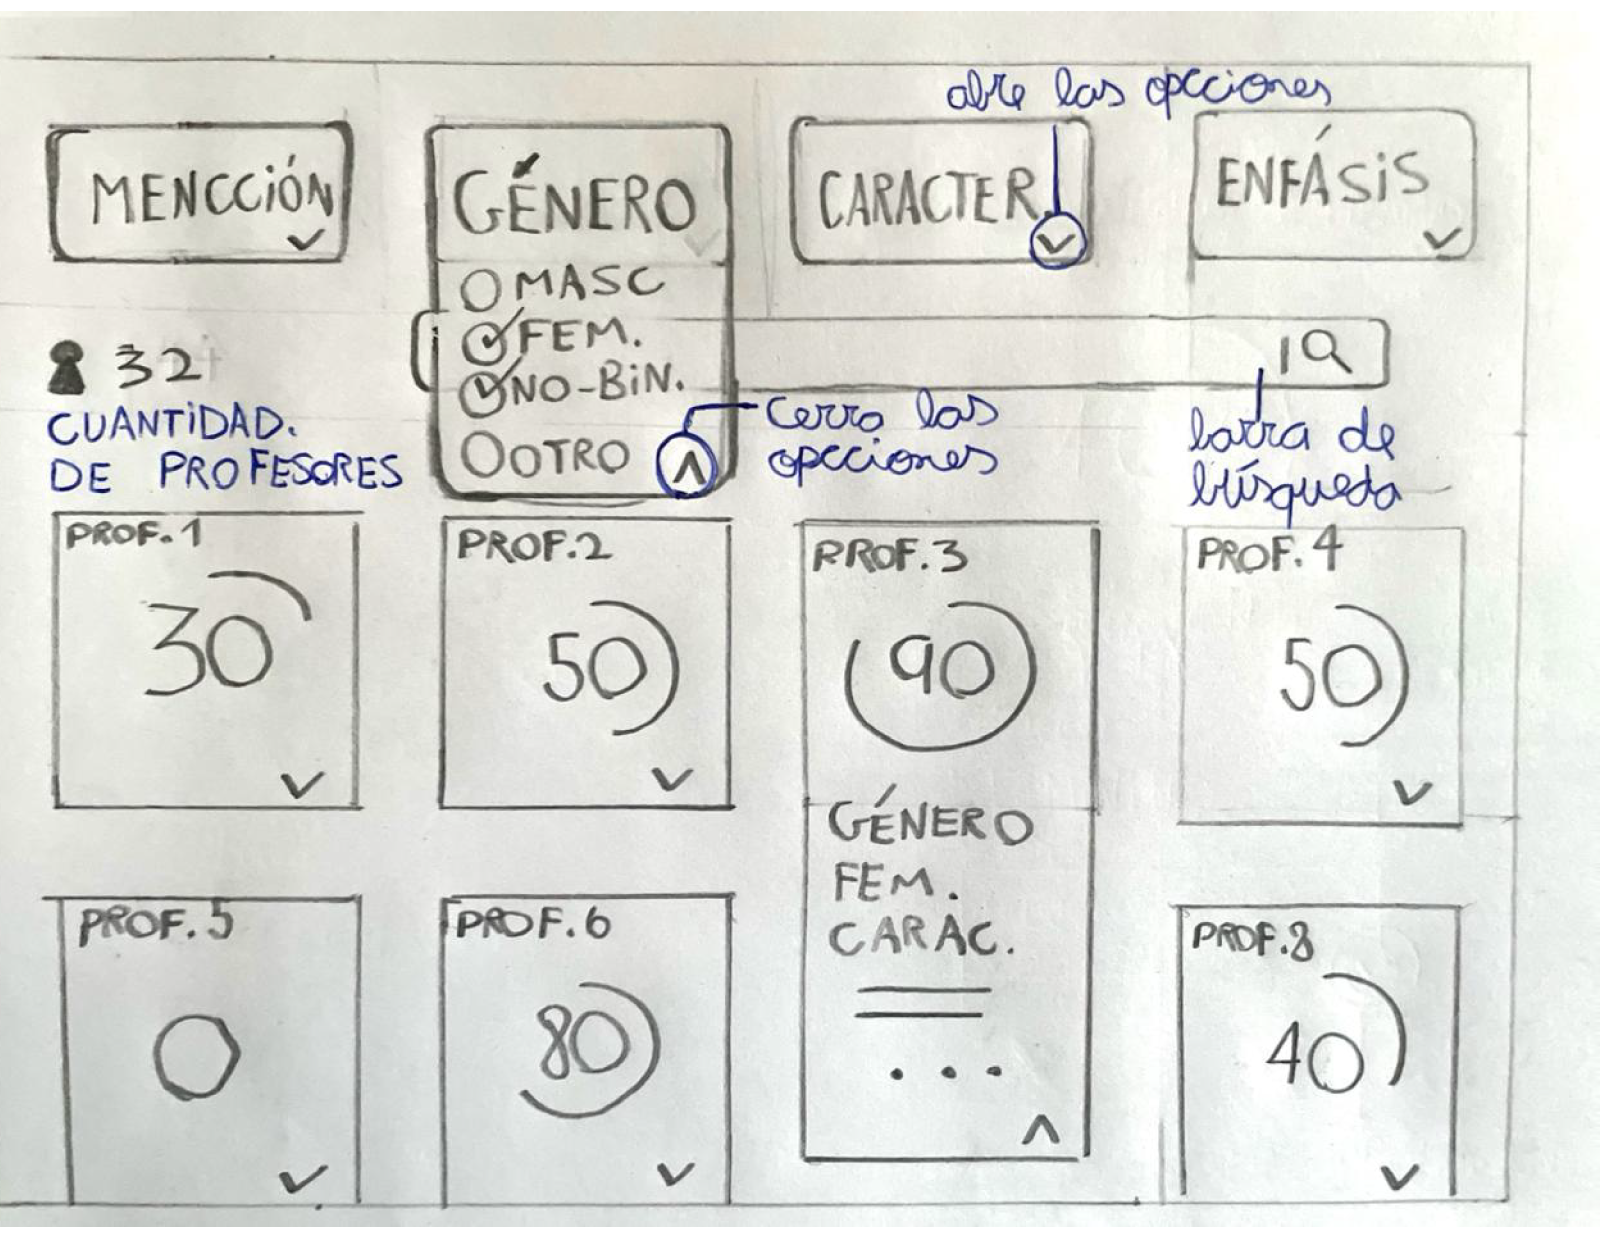 abre las opcciones
MENCCIÓN
GÉNERO
CARACTER
ENFÁSIS
MASC
FEM.
NO-BIN.
OTRO
32
CUANTIDAD.
DE PROFESORES
cerra las
opcciones
barra de
búsqueda
PROF. 1
30
PROF. 2
50
PROF. 3
90
GÉNERO
FEM.
CARAC.
...
PROF. 4
50
PROF. 5
0
PROF. 6
80
PROF. 8
40